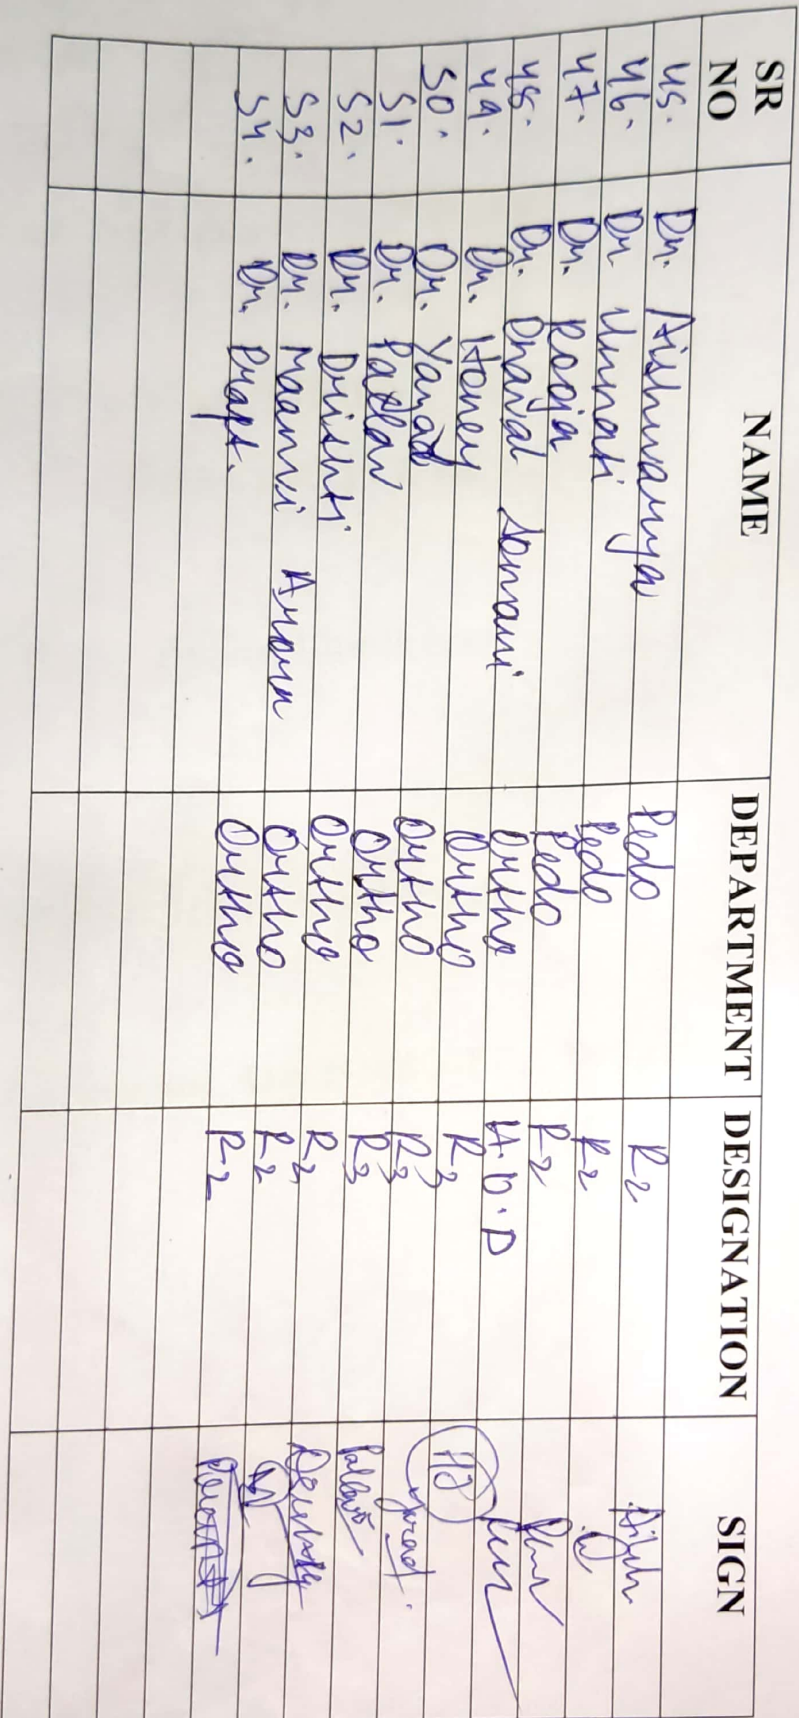 SR NO NAME DEPARTMENT DESIGNATION SIGN
45. Dr. Aishwarya Pedo R2
46. Dr Unnati Pedo R2
47. Dr. Pooja Pedo R2
48. Dr. Dhaval Somani Ortho H.O.D
49. Dr. Honey Ortho R3 HJ
50. Dr. Ortho R3
51. Dr. Pallav Ortho R3 Pallav
52. Dr. Drishti Ortho R3
53. Dr. Maanvi Arora Ortho R2
54. Dr. Prapt. Ortho R2